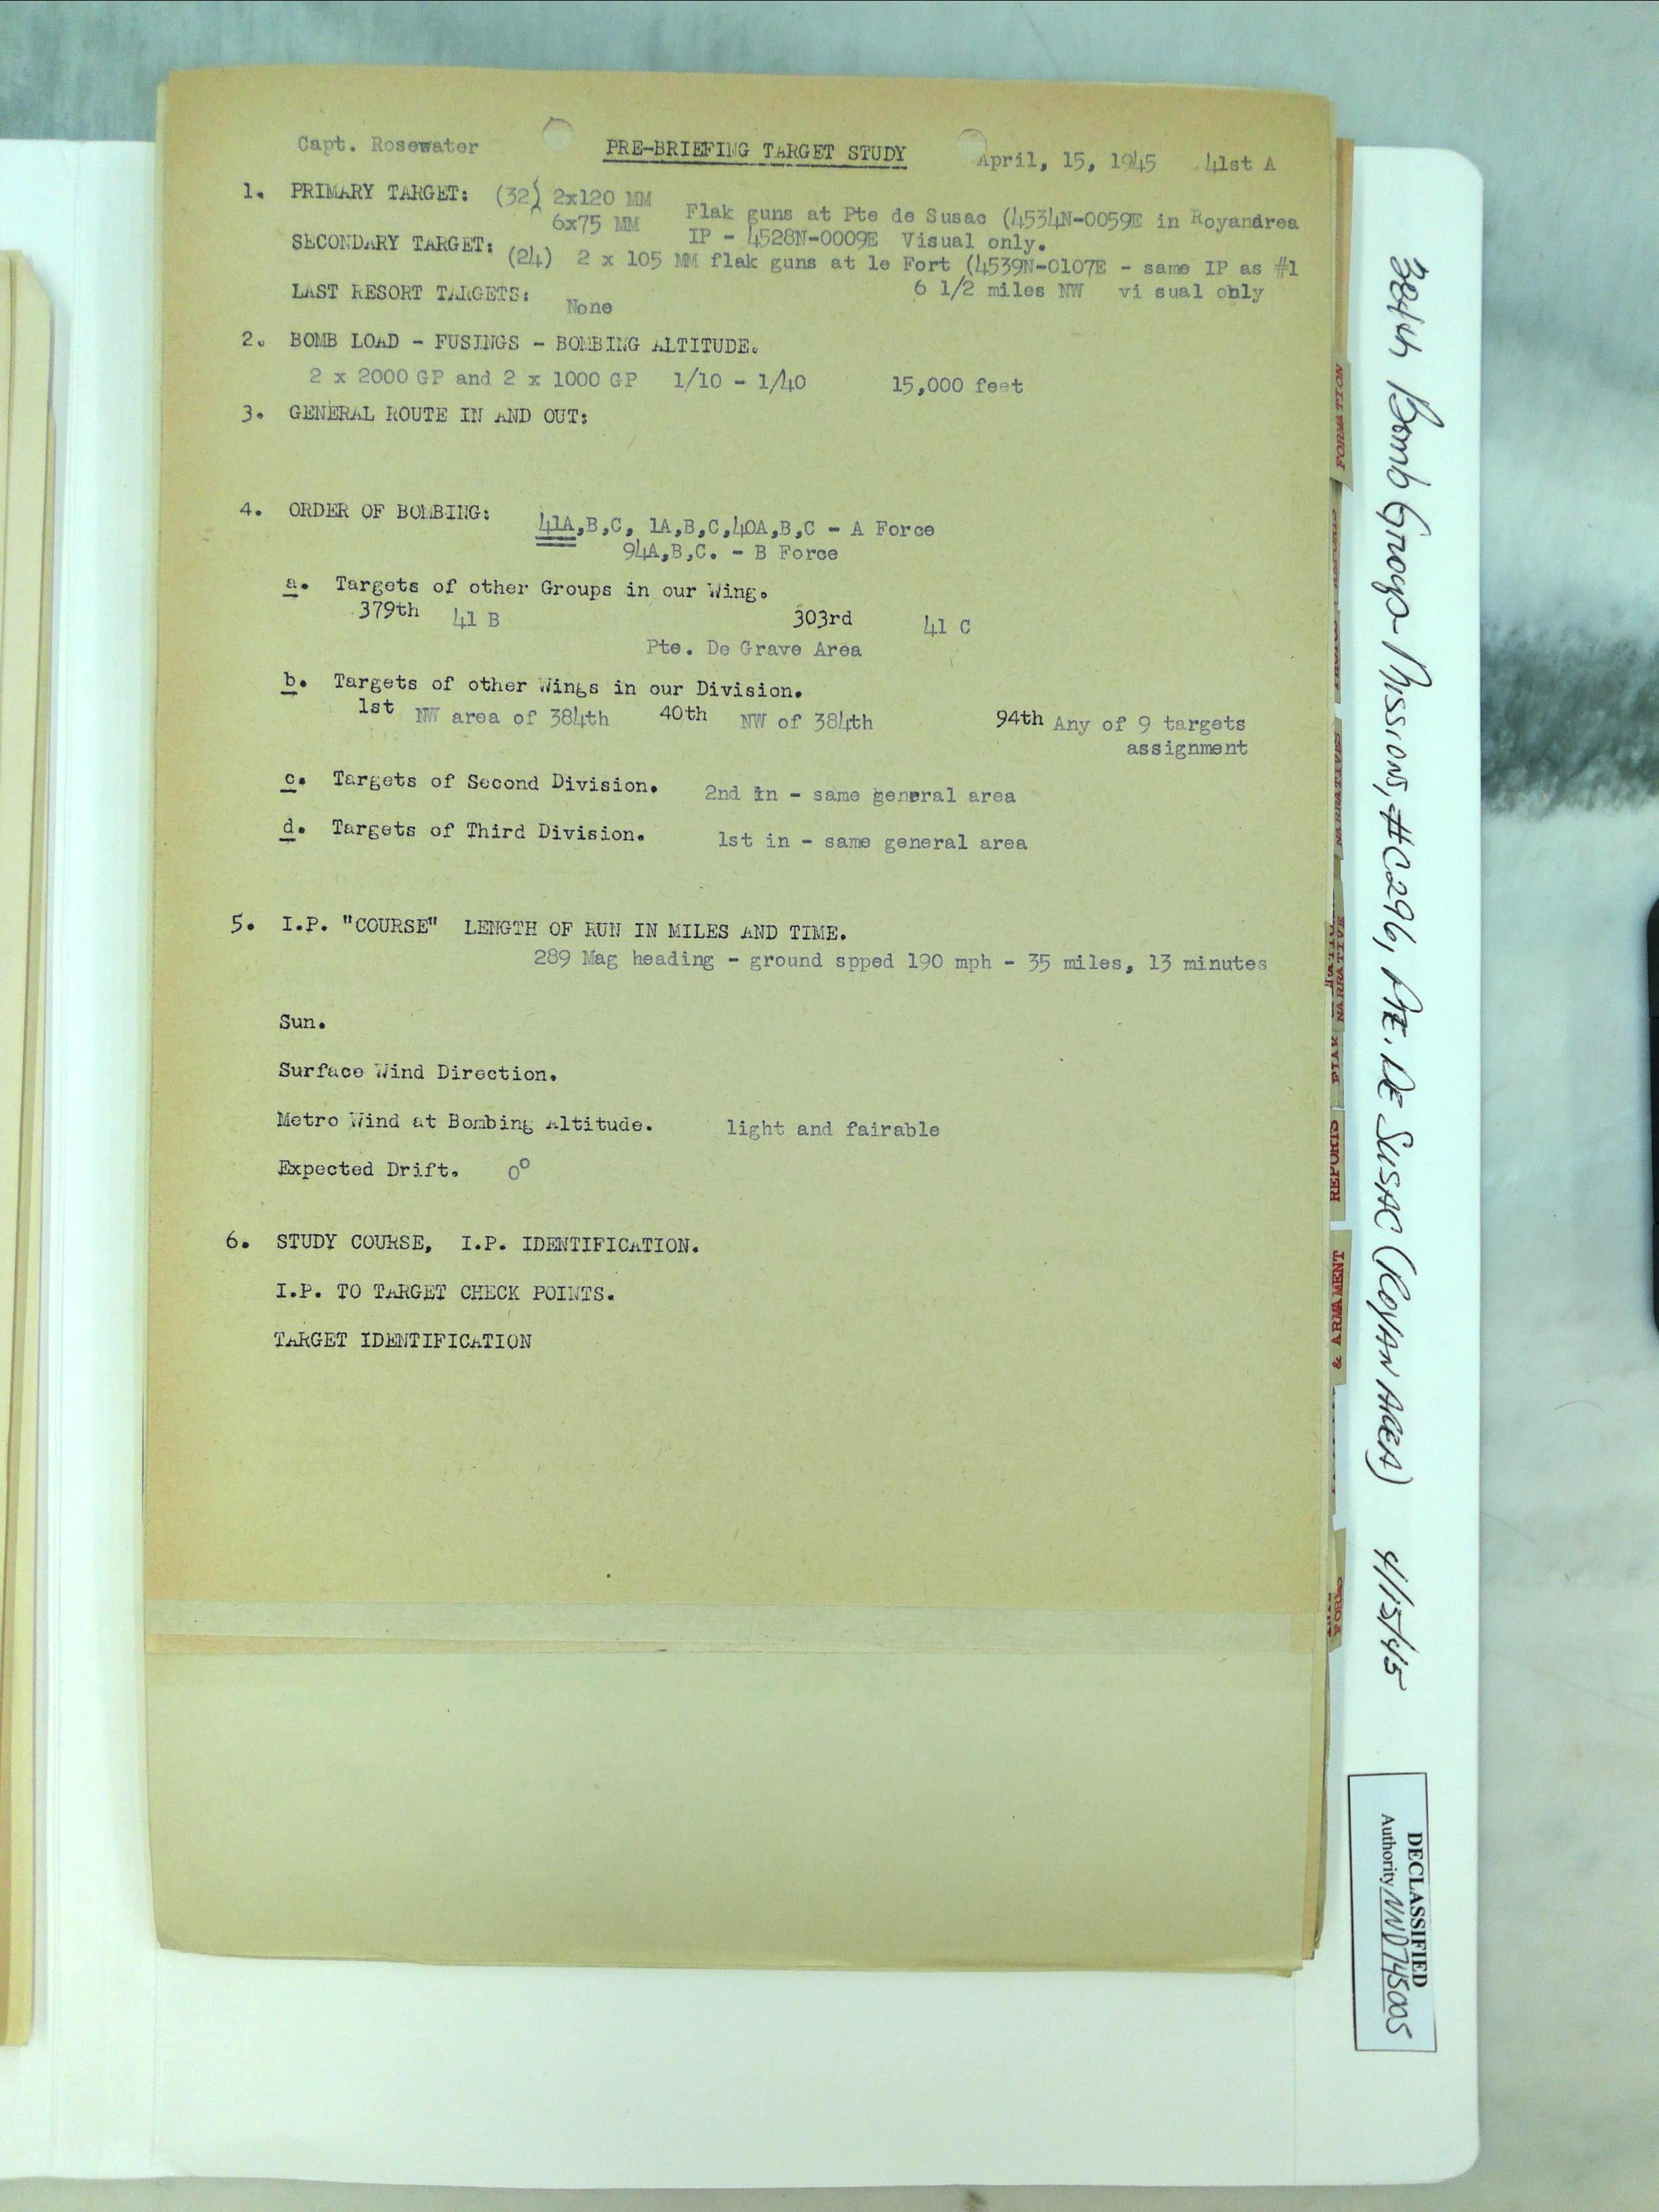 Capt. Rosewater PRE-BRIEFING TARGET STUDY April, 15, 1945 41st A
1. PRIMARY TARGET: (32) 2x120 MM
6x75 MM Flak guns at Pte de Susac (4534N-0059E in Royandrea
IP - 4528N-0009E Visual only.
SECONDARY TARGET: (24) 2 x 105 MM flak guns at le Fort (4539N-0107E - same IP as #1
6 1/2 miles NW vi sual only
LAST RESORT TARGETS: None
2. BOMB LOAD - FUSINGS - BOMBING ALTITUDE.
2 x 2000 GP and 2 x 1000 GP 1/10 - 1/40 15,000 feet
3. GENERAL ROUTE IN AND OUT:
4. ORDER OF BOMBING: 41A,B,C, 1A,B,C,40A,B,C - A Force
94A,B,C. - B Force
a. Targets of other Groups in our Wing.
379th 41 B 303rd 41 C
Pte. De Grave Area
b. Targets of other Wings in our Division.
1st NW area of 384th 40th NW of 384th 94th Any of 9 targets
assignment
c. Targets of Second Division. 2nd in - same general area
d. Targets of Third Division. 1st in - same general area
5. I.P. "COURSE" LENGTH OF RUN IN MILES AND TIME.
289 Mag heading - ground spped 190 mph - 35 miles, 13 minutes
Sun.
Surface Wind Direction.
Metro Wind at Bombing Altitude. light and fairable
Expected Drift. 0°
6. STUDY COURSE, I.P. IDENTIFICATION.
I.P. TO TARGET CHECK POINTS.
TARGET IDENTIFICATION
384th Bomb Group Missions, #C296, Pte. De Susac (Royan Area) 4/15/45
DECLASSIFIED
Authority NND745005
FORMATION
NARRATIVES
NARRATIVE
FLAK
REPORTS
& ARMAMENT